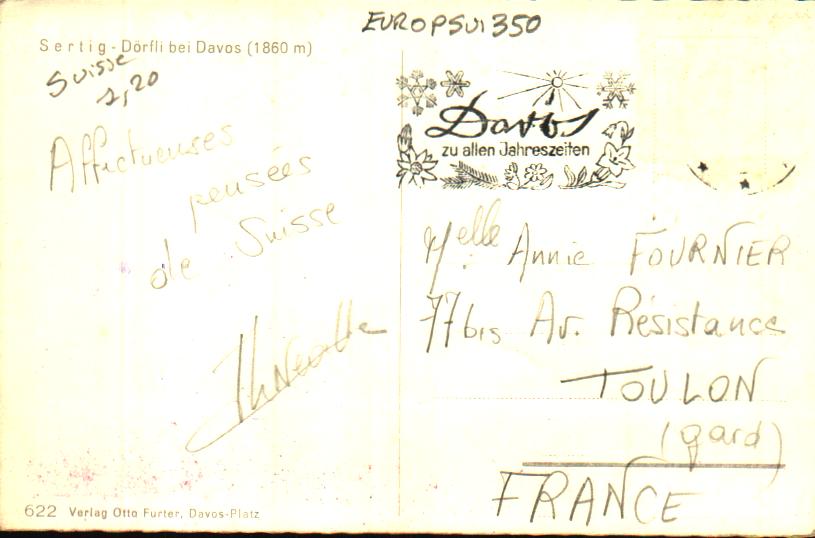 EUROPSUI350
Sertig-Dörfli bei Davos (1860 m)
Suisse
1,20
Davos
zu allen Jahreszeiten
Affectueuses
pensées
de Suisse
Melle Annie FOURNIER
77 bis Av. Résistance
TOULON
(gard)
FRANCE
622 Verlag Otto Furter, Davos-Platz